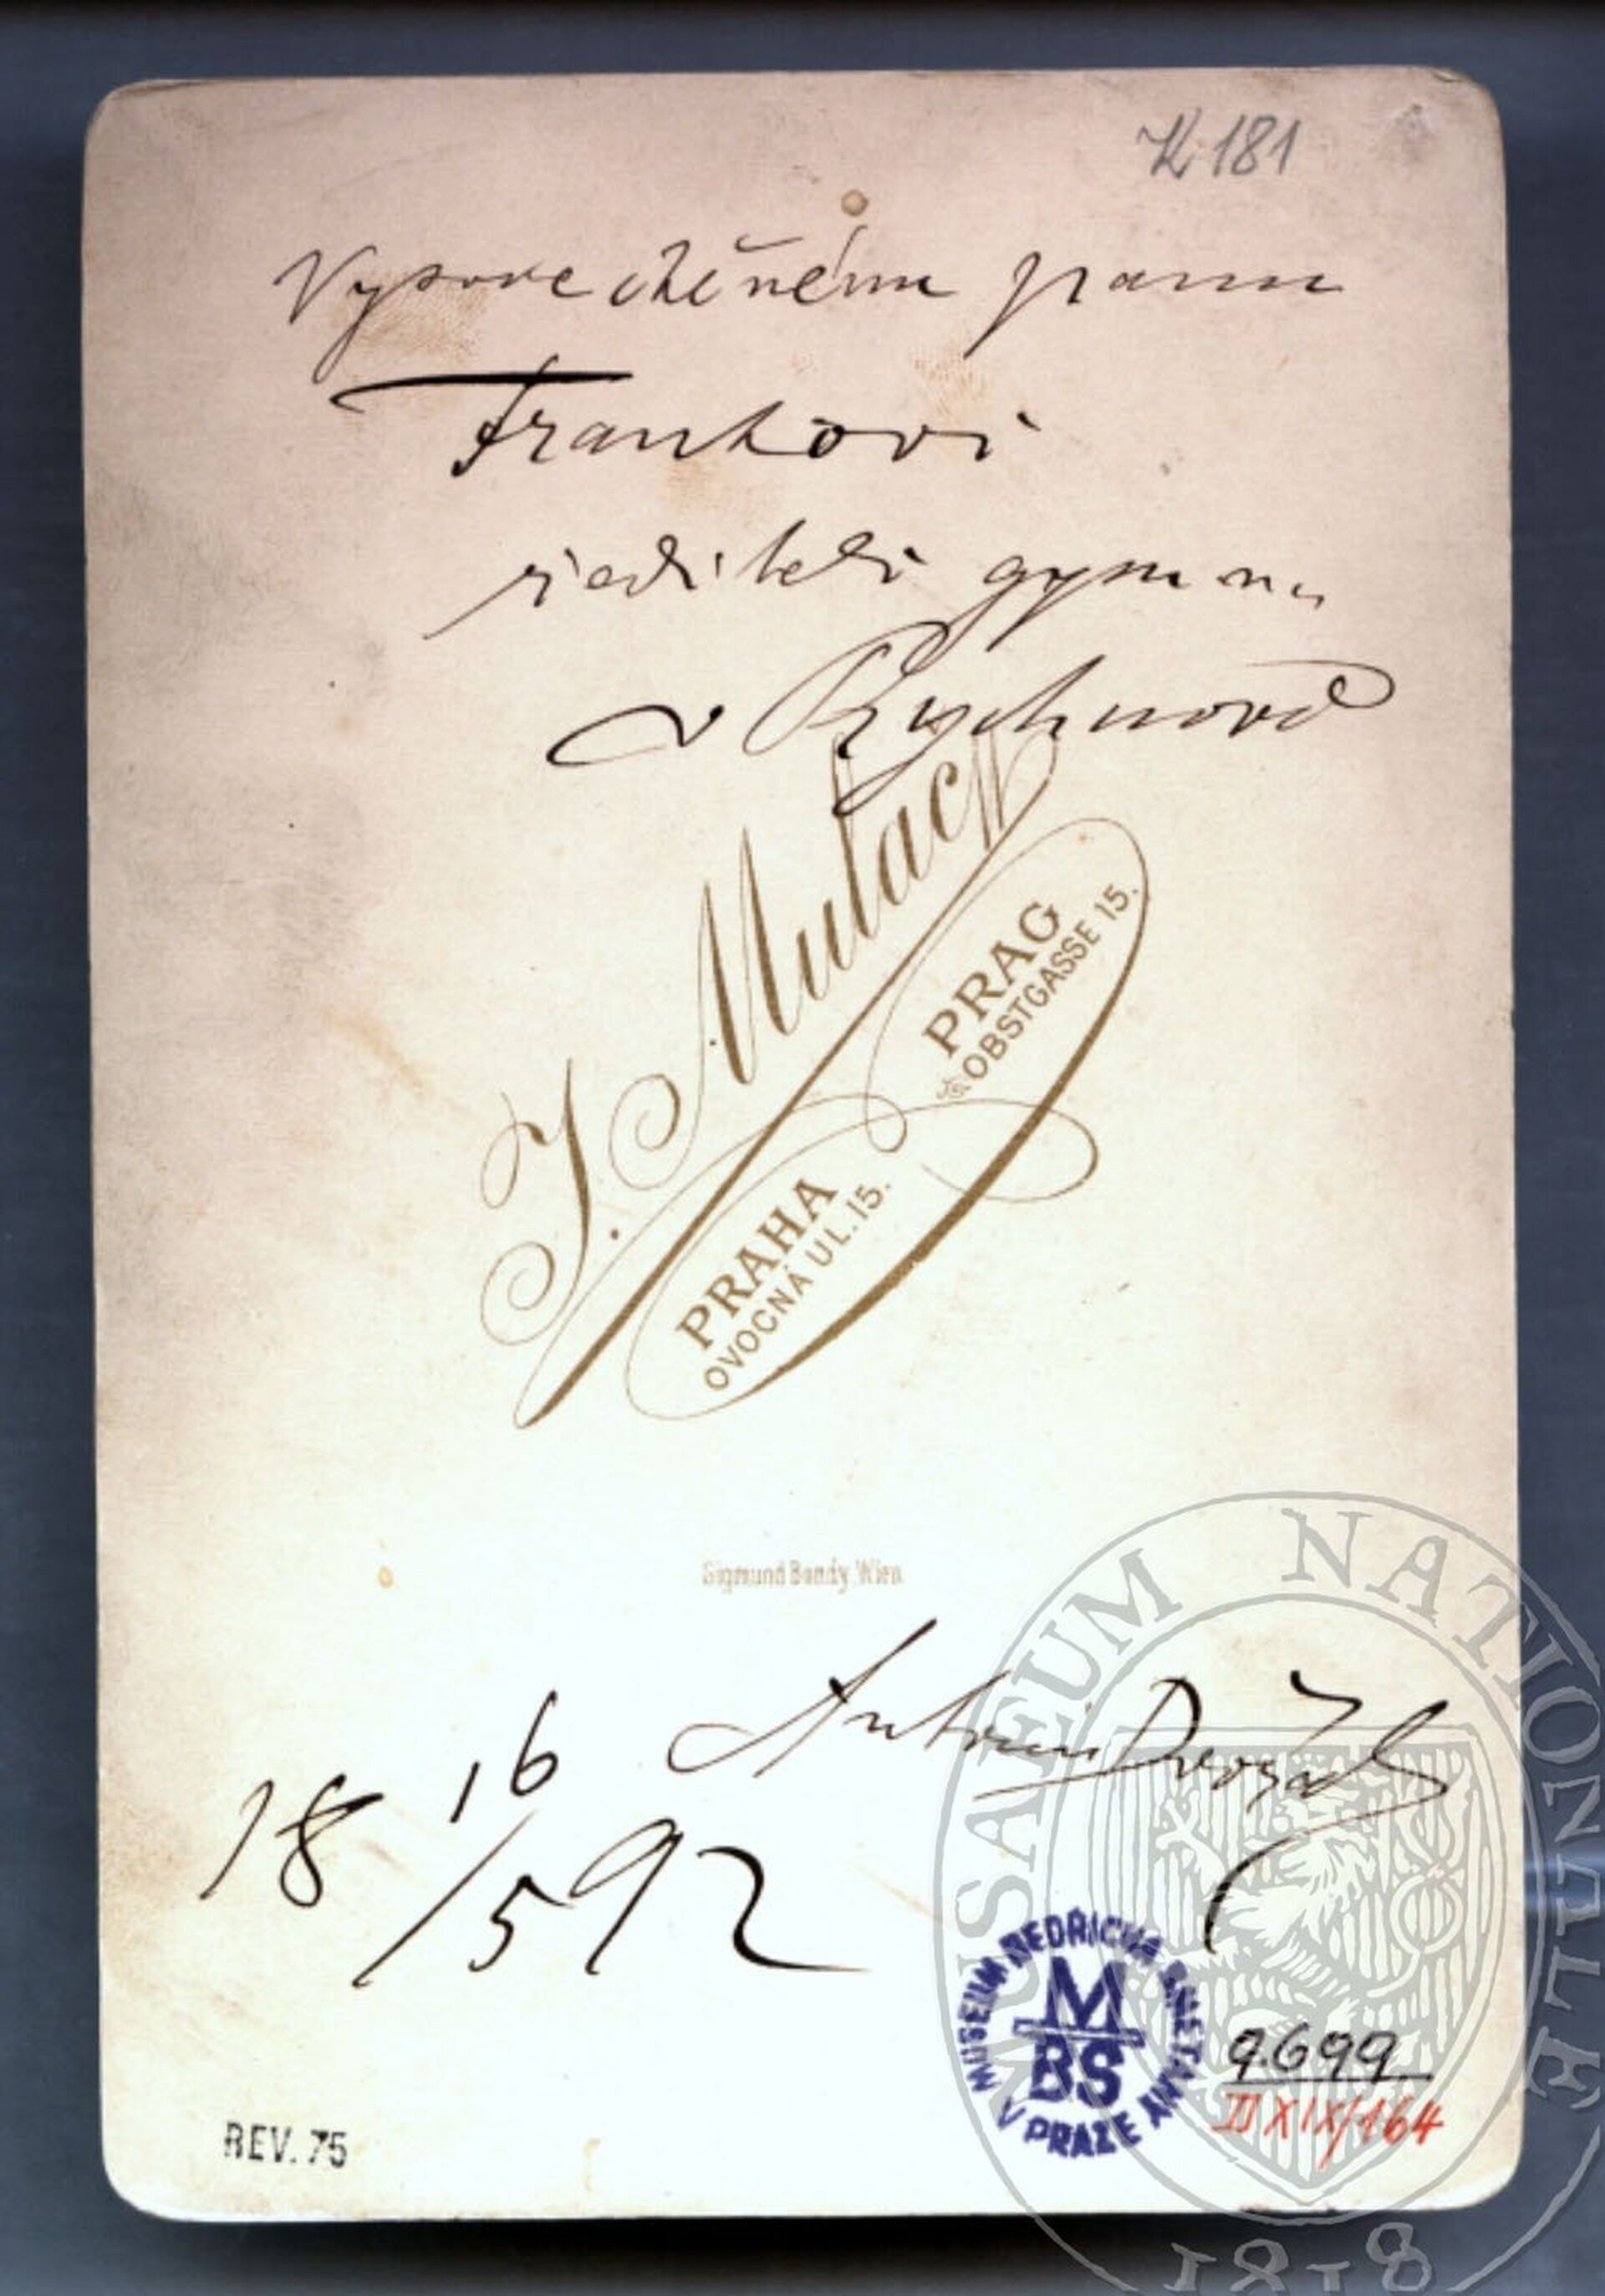 K 181
Vysoce ctěnému panu
Frankovi
řediteli gymn.
v Rychnově
J. Mulač
PRAG
OBSTGASSE 15.
PRAHA
OVOCNÁ UL. 15.
Sigmund Bondy, Wien
Antonín Dvořák
18 16/5 92
MUSEUM BEDŘICHA SMETANY V PRAZE
M
BS
9.699
III XIX/164
REV. 75
MUSAEUM NATIONALE
1818